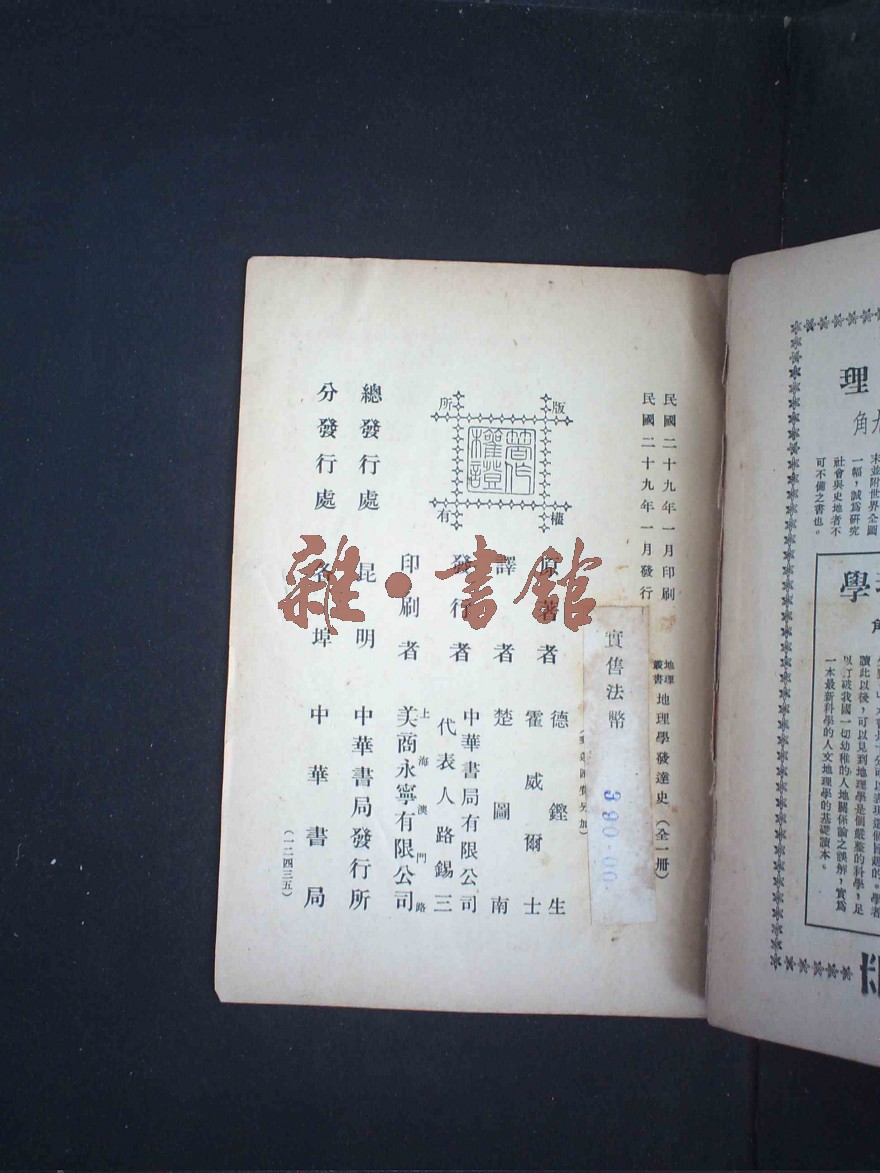 民國二十九年一月印刷
民國二十九年一月發行
地理
叢書
地理學發達史（全一冊）
實售法幣
390.00
版權所有
著作權證
原著者
德鏗生
霍威爾士
譯者
楚圖南
發行者
中華書局有限公司
代表人路錫三
印刷者
上海澳門路
美商永寧有限公司
總發行處
昆明
中華書局發行所
分發行處
各埠
中華書局
（一二四三五）
雜·書館
理
角
末並附世界全圖
一幅，誠爲研究
社會與史地者不
可不備之書也。
學
讀此以後，可以見到地理學是個嚴整的科學，足
以打破我國一切幼稚的人地關係論之誤解，實爲
一本最新科學的人文地理學的基礎讀本。